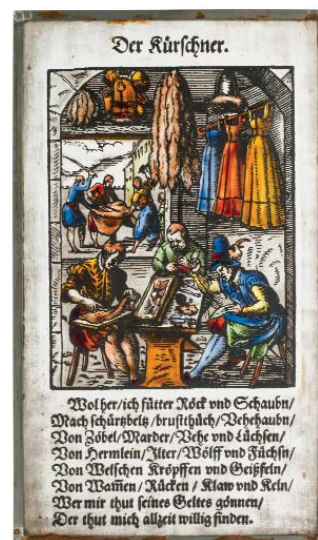 Der Kürschner.
Wol her/ich fütter Röck vnd Schaubn/
Mach schürtzbeltz/brustthüch/Vehehaubn/
Von Zobel/Marder/Vehe vnd Lüchsen/
Von Hermlein/Ilter/Wölff vnd Füchsn/
Von Welschen Kröpffen vnd Geißfeln/
Von Wam̃en/Rücken/Klaw vnd Keln/
Wer mir thut seines Geltes gönnen/
Der thut mich allzeit willig finden.